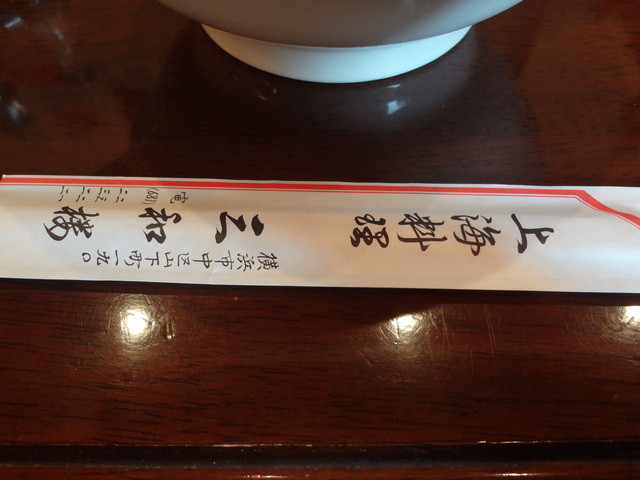 上海料理
横浜市中区山下町一九〇
三和樓
電(681)二三二一